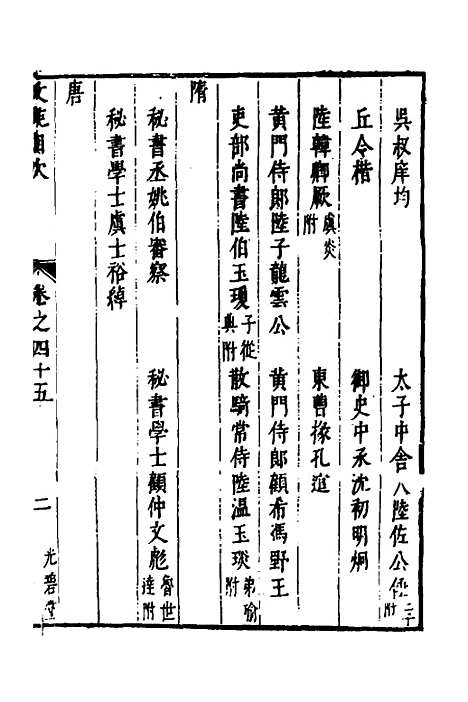 吳叔庠均 太子中舍人陸佐公倕二子附
丘令楷 御史中丞沈初明炯
陸韓卿厥虞炎附 東曹掾孔逭
黃門侍郎陸子龍雲公 黃門侍郎顧希馮野王
吏部尚書陸伯玉瓊子從典附 散騎常侍陸溫玉琰弟瑜附
隋
秘書丞姚伯審察 秘書學士顧仲文彪魯世達附
秘書學士虞士裕綽
唐
卷之四十五 二 光碧堂